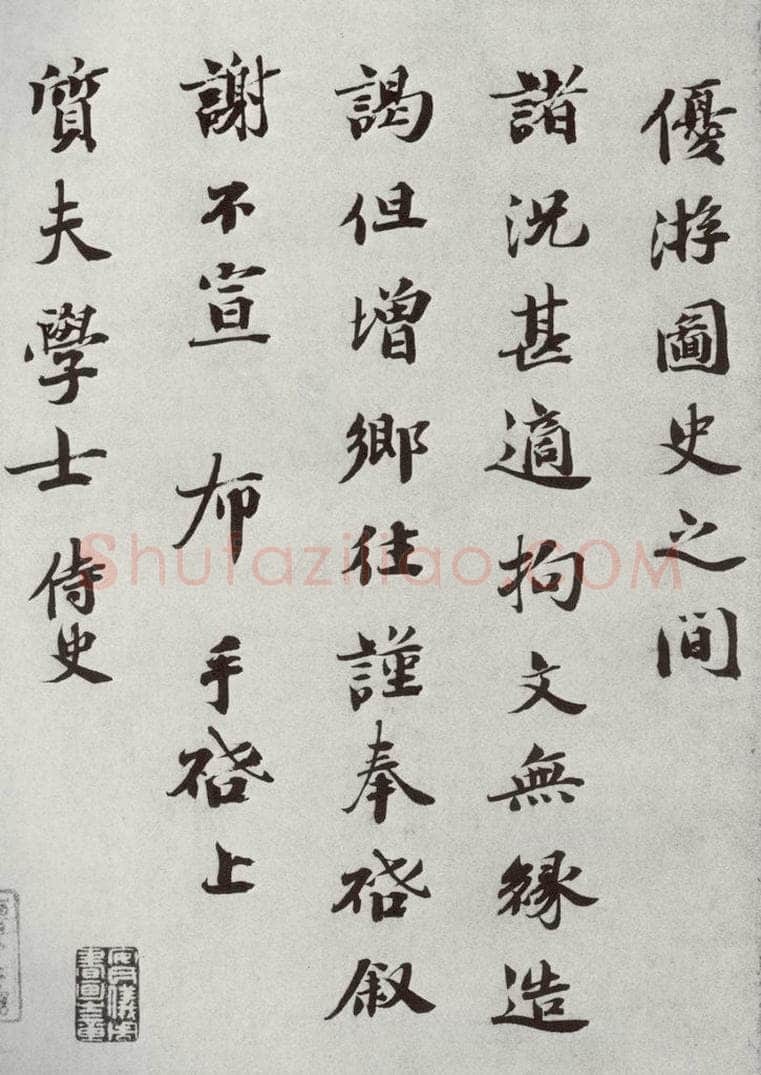 優游圖史之間
諸況甚適拘文無緣造
謁但增鄉往謹奉啓叙
謝不宣 布 手啓上
質夫學士 侍史
Shufaziliao.COM